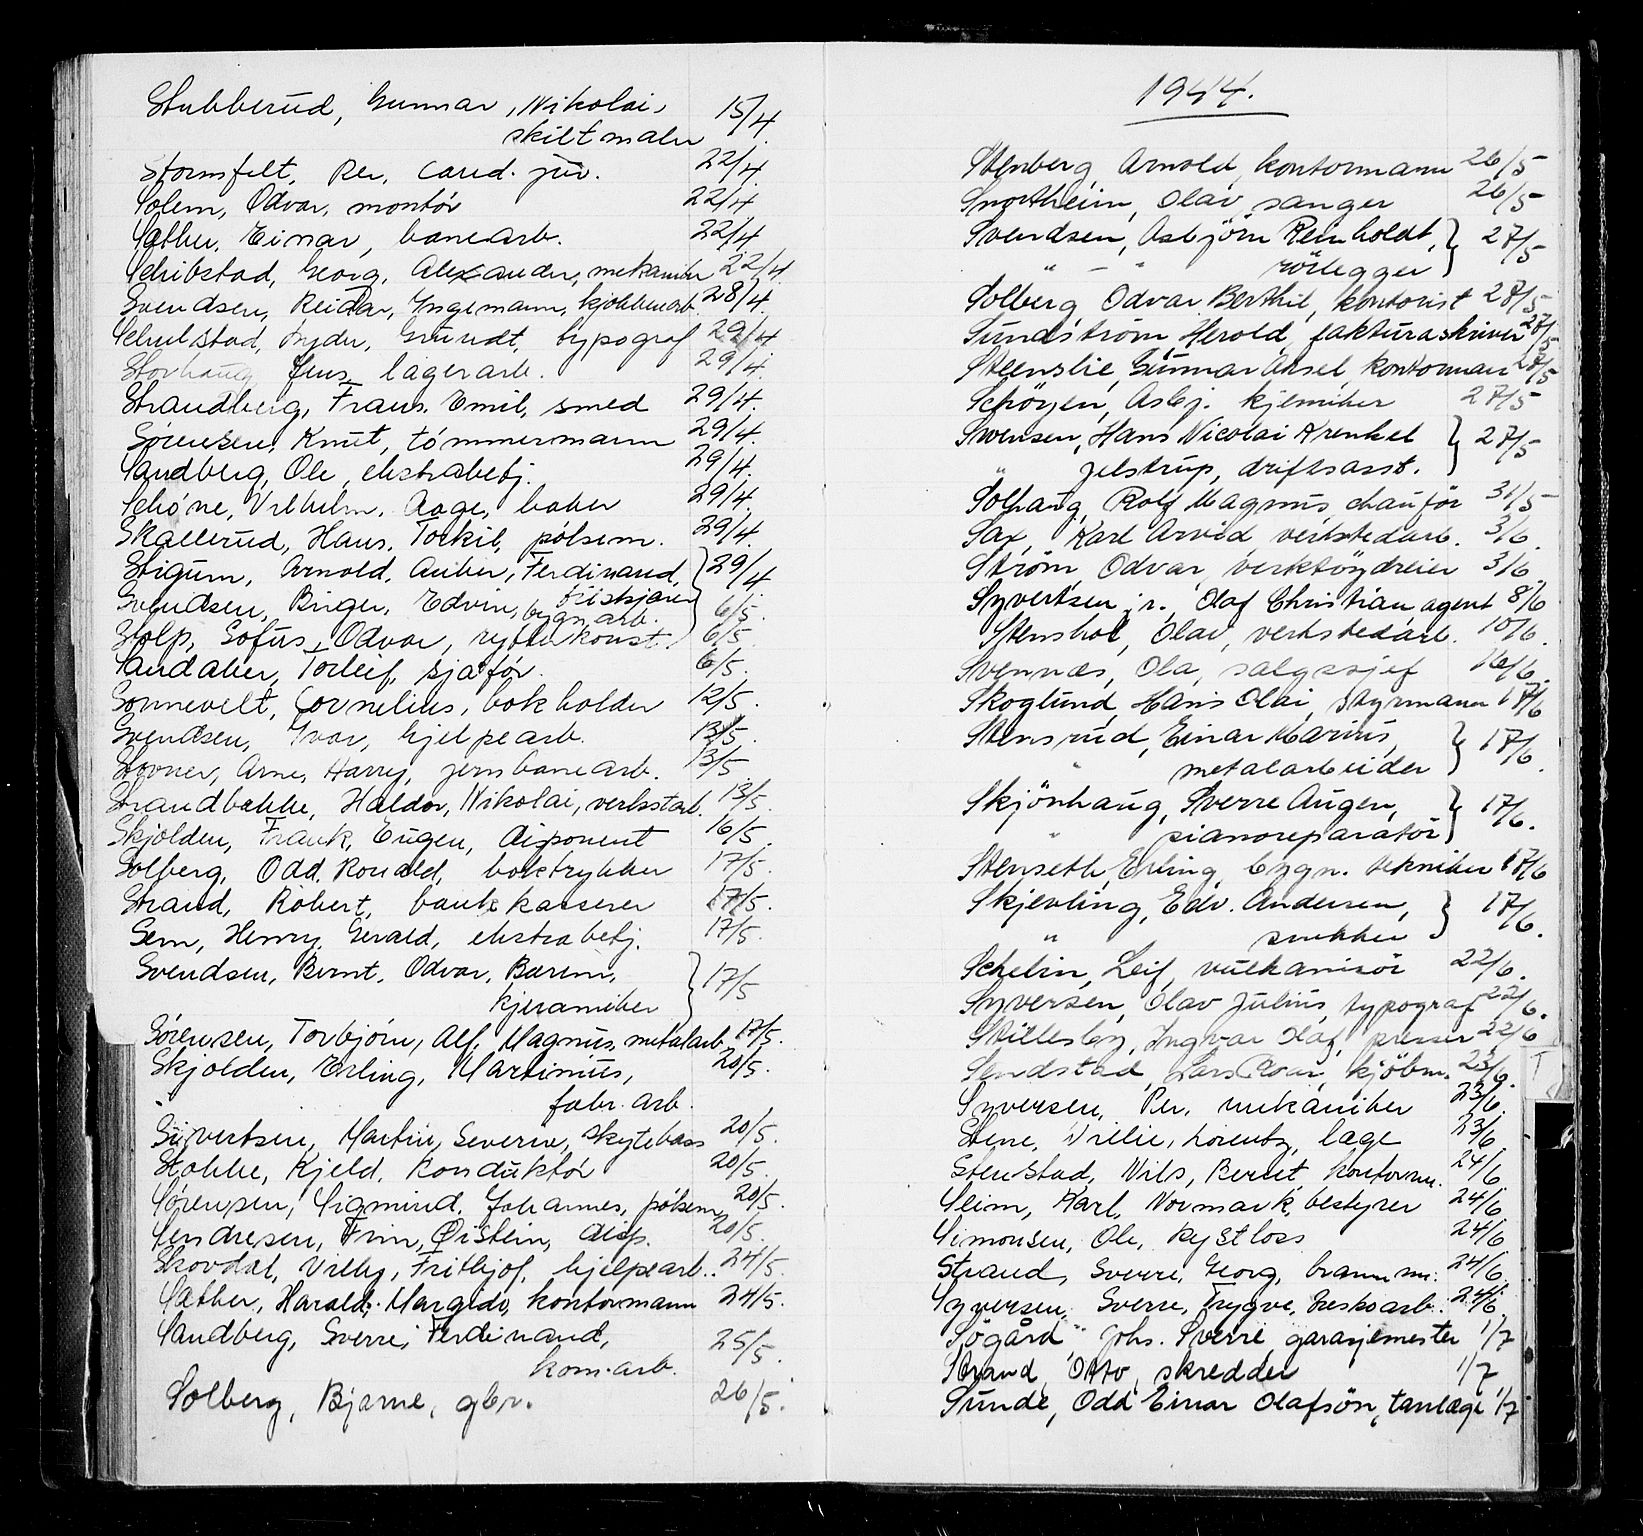 Stubberud, Gunnar, Nikolai, 15/4
skiltmaler
Stormfelt, Per, cand. jur. 22/4
Solem, Odvar, montör 22/4
Sæther, Einar, banearb. 22/4
Schibstad, Georg, Alexander, mekaniker 22/4
Svendsen, Reidar, Ingemann, kjökkenarb. 28/4
Schulstad, Peder, Grundt, typograf 29/4
Storhaug Jens, lagerarb. 29/4.
Strandberg, Frans. Emil, smed 29/4.
Sörensen, Knut, tömmermann 29/4.
Sandberg, Ole, ekstrabetj. 29/4.
Schöne, Vilhelm, Aage, baker 29/4.
Skallerud, Hans, Torkil, pölsem. 29/4.
Stigum, Arnold, Auber, Ferdinand, 29/4
Svendsen, Birger, Edvin, bygn.arb. 6/5.
Stolp, Sofus, Odvar, konst. 6/5.
Sandaker, Torleif, sjåför. 6/5.
Sonnevelt, Cornelius, bokholder 12/5.
Svendsen, Ivar, hjelpearb. 13/5.
Stovner, Arne, Harry, jernbanearb. 13/5.
Strandbakke, Haldor, Nikolai, verkstarb. 13/5.
Skjolden, Frank, Eugen, disponent 16/5.
Solberg, Odd. Ronald, boktrykker 17/5.
Strand, Robert, bankkasserer 17/5.
Sem, Henry, Gerald, ekstrabetj. 17/5.
Svendsen, Bernt, Odvar, Barim, 17/5
kjeramiker
Sörensen, Torbjörn, Alf, Magnus, metalarb. 17/5.
Skjolden, Erling, Martinius, 20/5.
fabr. arb.
Sivertsen, Martin, Severin, skytebass 20/5.
Stokke, Kjeld, konduktör 20/5.
Sörensen, Sigmund, Johannes, pölsem. 20/5.
Sendresen, Finn, Øistein, disp. 20/5.
Skovdal, Villy, Fritbjof, hjelpearb. 24/5.
Sæther, Harald, Margido, kontormann 24/5.
Sandberg, Sverre, Ferdinand, 25/5.
kom.arb.
Solberg, Bjarne, gbr. 26/5.
1944.
Stenberg, Arnold, kontormann 26/5
Snortheim, Olav, sanger 26/5
Svendsen, Asbjörn Reinholdt, } 27/5
" - " rörlegger
Solberg, Odvar Berthil, kontorist 27/5
Sundström, Herold, fakturaskriver 27/5
Steenslie, Gunnar Aksel, kontorman 27/5
Schöyen, Asbj. kjemiker 27/5
Swensen, Hans Nicolai Krenkel } 27/5
" Jelstrup, driftsasst.
Solhaug, Rolf Magnus, chauför 31/5
Sax, Karl Arvid, verkstedarb. 3/6.
Ström, Odvar, verktöydreier 3/6.
Syvertsen jr., Olaf Christian agent 8/6
Stenshol, Olav, verkstedarb. 10/6.
Svennæs, Ola, salgssjef 16/6.
Skoglund, Hans Olai, styrmann 17/6
Stensrud, Einar Marius, } 17/6.
" metalarbeider
Skjönhaug, Sverre Augen, } 17/6.
" pianoreparatör
Stenseth, Erling, bygn. tekniker 17/6
Skjevling, Edv. Andersen, } 17/6.
" snekker
Schelin, Leif, vulkanisör 22/6.
Syversen, Olav Julius, typograf 22/6.
Stillesby, Ingvar Olaf, presser 22/6
Sendstad, Lars Roar, kjöbm. 23/6.
Syversen, Per, mekaniker 23/6.
Stene, Willie, Lorentz, læge 23/6
Stenstad, Nils, Bernt, kontorm. 24/6
Sleim, Karl, Normark, bestyrer 24/6
Simonsen, Ole, kystlos 24/6
Strand, Sverre, Georg, brannm. 24/6
Syversen, Sverre, Trygve, treskoarb. 24/6
Sögård, Johs. Sverre, garasjemester 1/7
Strand, Otto, skredder 1/7
Sunde, Odd Einar Olafsön, tanlæge 1/7